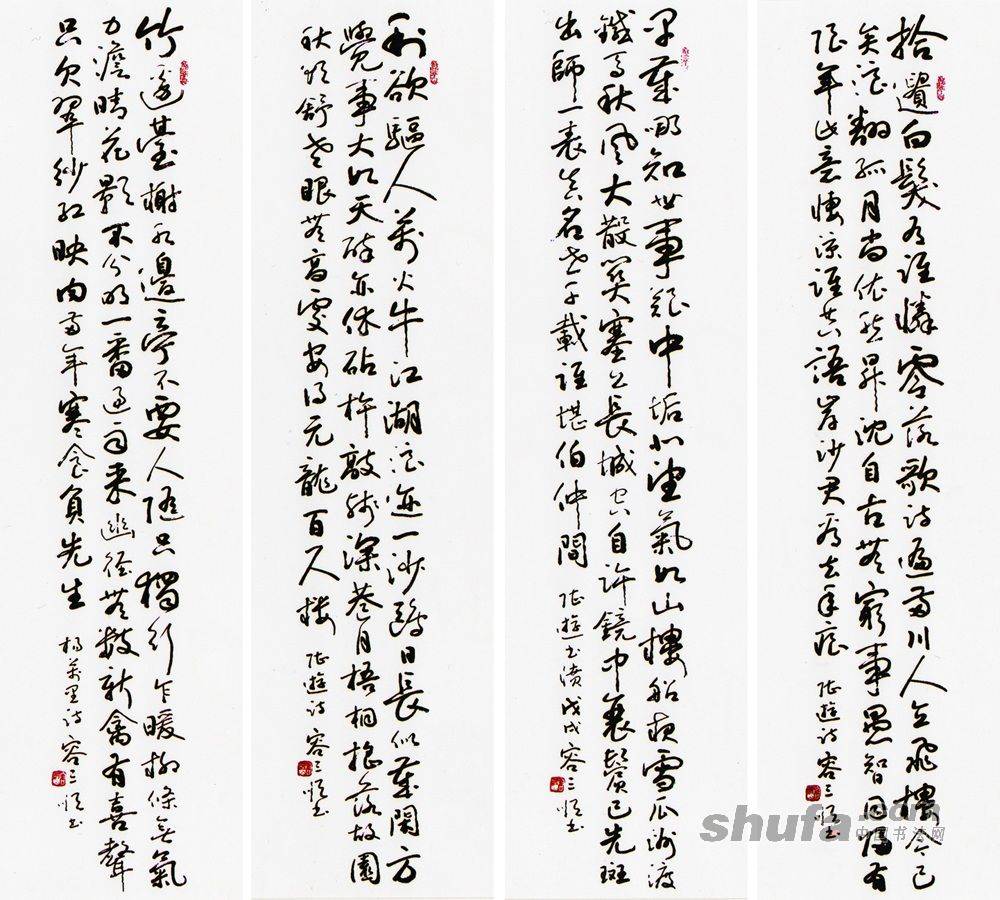 拾遺白髮有誰憐零落歌詩遍兩川人立飛樓今已
矣浪翻孤月尚依然昇沈自古無窮事愚智同歸有
限年此意悽涼誰共語岸沙君看去年痕 陸遊詩 容三順書
早歲哪知世事艱中原北望氣如山樓船夜雪瓜洲渡
鐵馬秋風大散關塞上長城空自許鏡中衰鬢已先斑
出師一表真名世千載誰堪伯仲間 陸遊書憤 戊戌容三順書
利欲驅人萬火牛江湖浪迹一沙鷗日長似歲閑方
覺事大如天醉亦休砧杵敲殘深巷月梧桐搖落故園
秋欲舒老眼無高處安得元龍百尺樓 陸遊詩 容三順書
竹邊臺榭水邊亭不要人隨只獨行乍暖柳條無氣
力澹晴花影不分明一番過雨來幽徑無數新禽有喜聲
只欠翠紗紅映肉兩年寒食負先生 楊萬里詩 容三順書
shufa.com
中国书法网